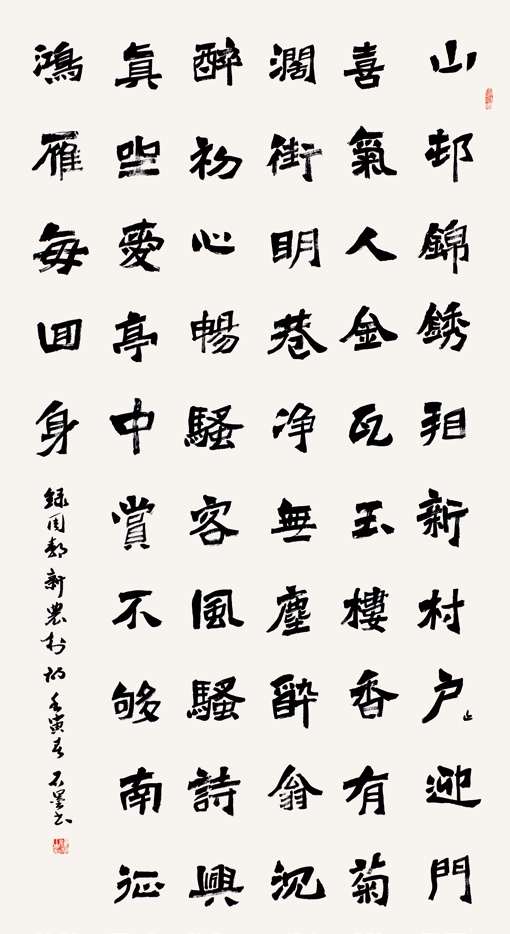 山邨錦銹新村户々迎門
喜氣人金瓦玉樓香有菊
濶街明巷净無塵醉翁沉
醉初心暢騷客風騷詩興
真坐愛亭中賞不够南征
鴻雁每回身
録周新農村詩壬寅春石墨書